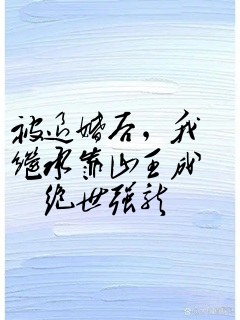 被退婚后，我
继承靠山王成
绝世强龙